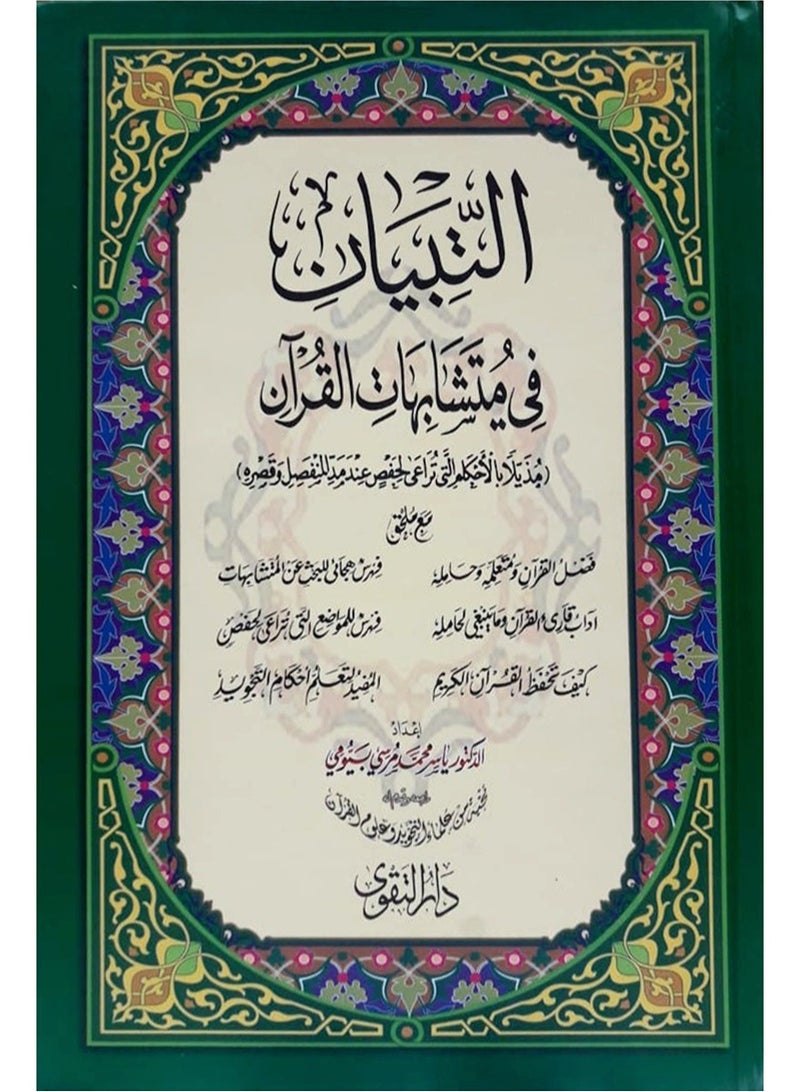 التِّبْيَانِ
فِي مُتَشَابِهَاتِ القُرْآنِ
(مُذَيَّلًا بِالأَحْكَامِ الَّتِي تُرَاعَى لِحَفْصٍ عِنْدَ مَدِّ المُنْفَصِلِ وَقَصْرِهِ)
مَع مُلْحَق
فَضْلُ القُرْآنِ وَمُتَعَلِّمِهِ وَحَامِلِهِ فِهْرِسْ هِجَائِي لِلبَحْثِ عَنِ المُتَشَابِهَاتِ
اداب قَارِئِ القُرْآنِ وَمَا يَنْبَغِي لِحَامِلِهِ فِهْرِسْ لِلمَوَاضِعِ الَّتِي تُرَاعَى لِحَفْصٍ
كَيْفَ تَحْفَظُ القُرْآنَ الكَرِيمَ المُفِيدُ لِتَعَلُّمِ أَحْكَامِ التَّجْوِيدِ
إعْدَاد
الدكتور ياسر محمد مرسي بيومي
راجعه وقدم له
نخبة من علماء التجويد وعلوم القرآن
دَارُ التَّقْوَى